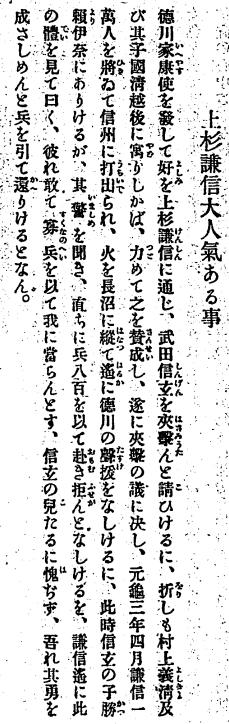 上杉謙信大人氣ある事
德川家康使を發して好を上杉謙信に通じ、武田信玄を夾擊んと請ひけるに、折しも村上義淸及
び其子國淸越後に寓りしかば、力めて之を賛成し、遂に夾擊の議に決し、元龜三年四月謙信一
萬人を將ゐて信州に打出られ、火を長沼に縱て遙に德川の聲援をなしけるに、此時信玄の子勝
賴伊奈にありけるが、其警を聞き、直ちに兵八百を以て赴き拒んとなしけるを、謙信遙に此
の體を見て曰く、彼れ敢て寡兵を以て我に當らんとす、信玄の兒たるに愧ぢず、吾れ其勇を
成さしめんと兵を引て還りけるとなん。